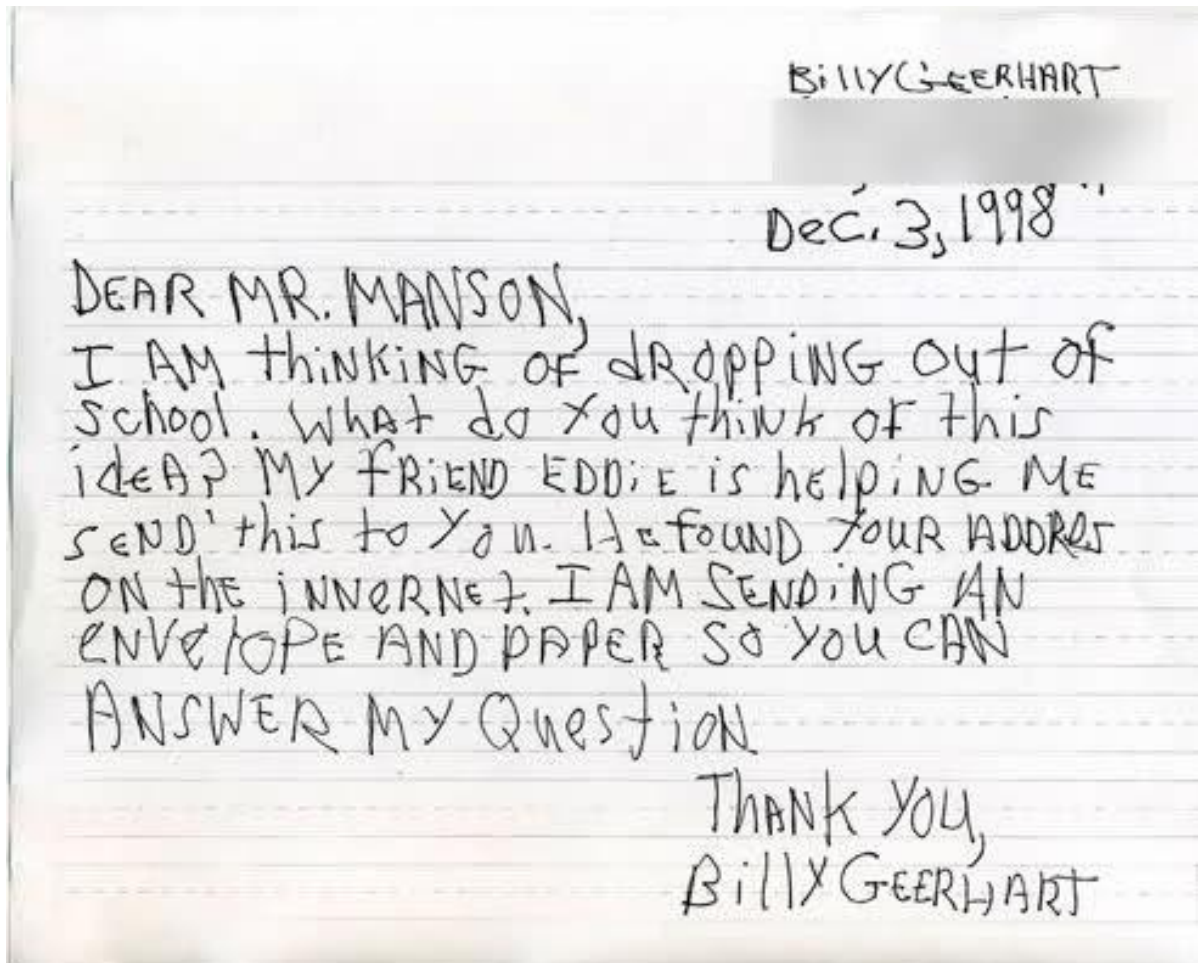 BillY GEERHART
DeC. 3, 1998
DEAR MR. MANSON,
I AM thiNKiNG OF dROPPiNG Out of
School. WhAt do You thiNk of this
ideA? MY fRiEND EDDiE is helpiNG ME
SEND this to You. He foUND YOUR ADDRes
ON thE iNNeRNEt. I AM SENDiNG AN
eNVelOPE AND PAPER SO YOU CAN
ANSWER MY QuestioN
ThANK YOU,
BillY GEERHART